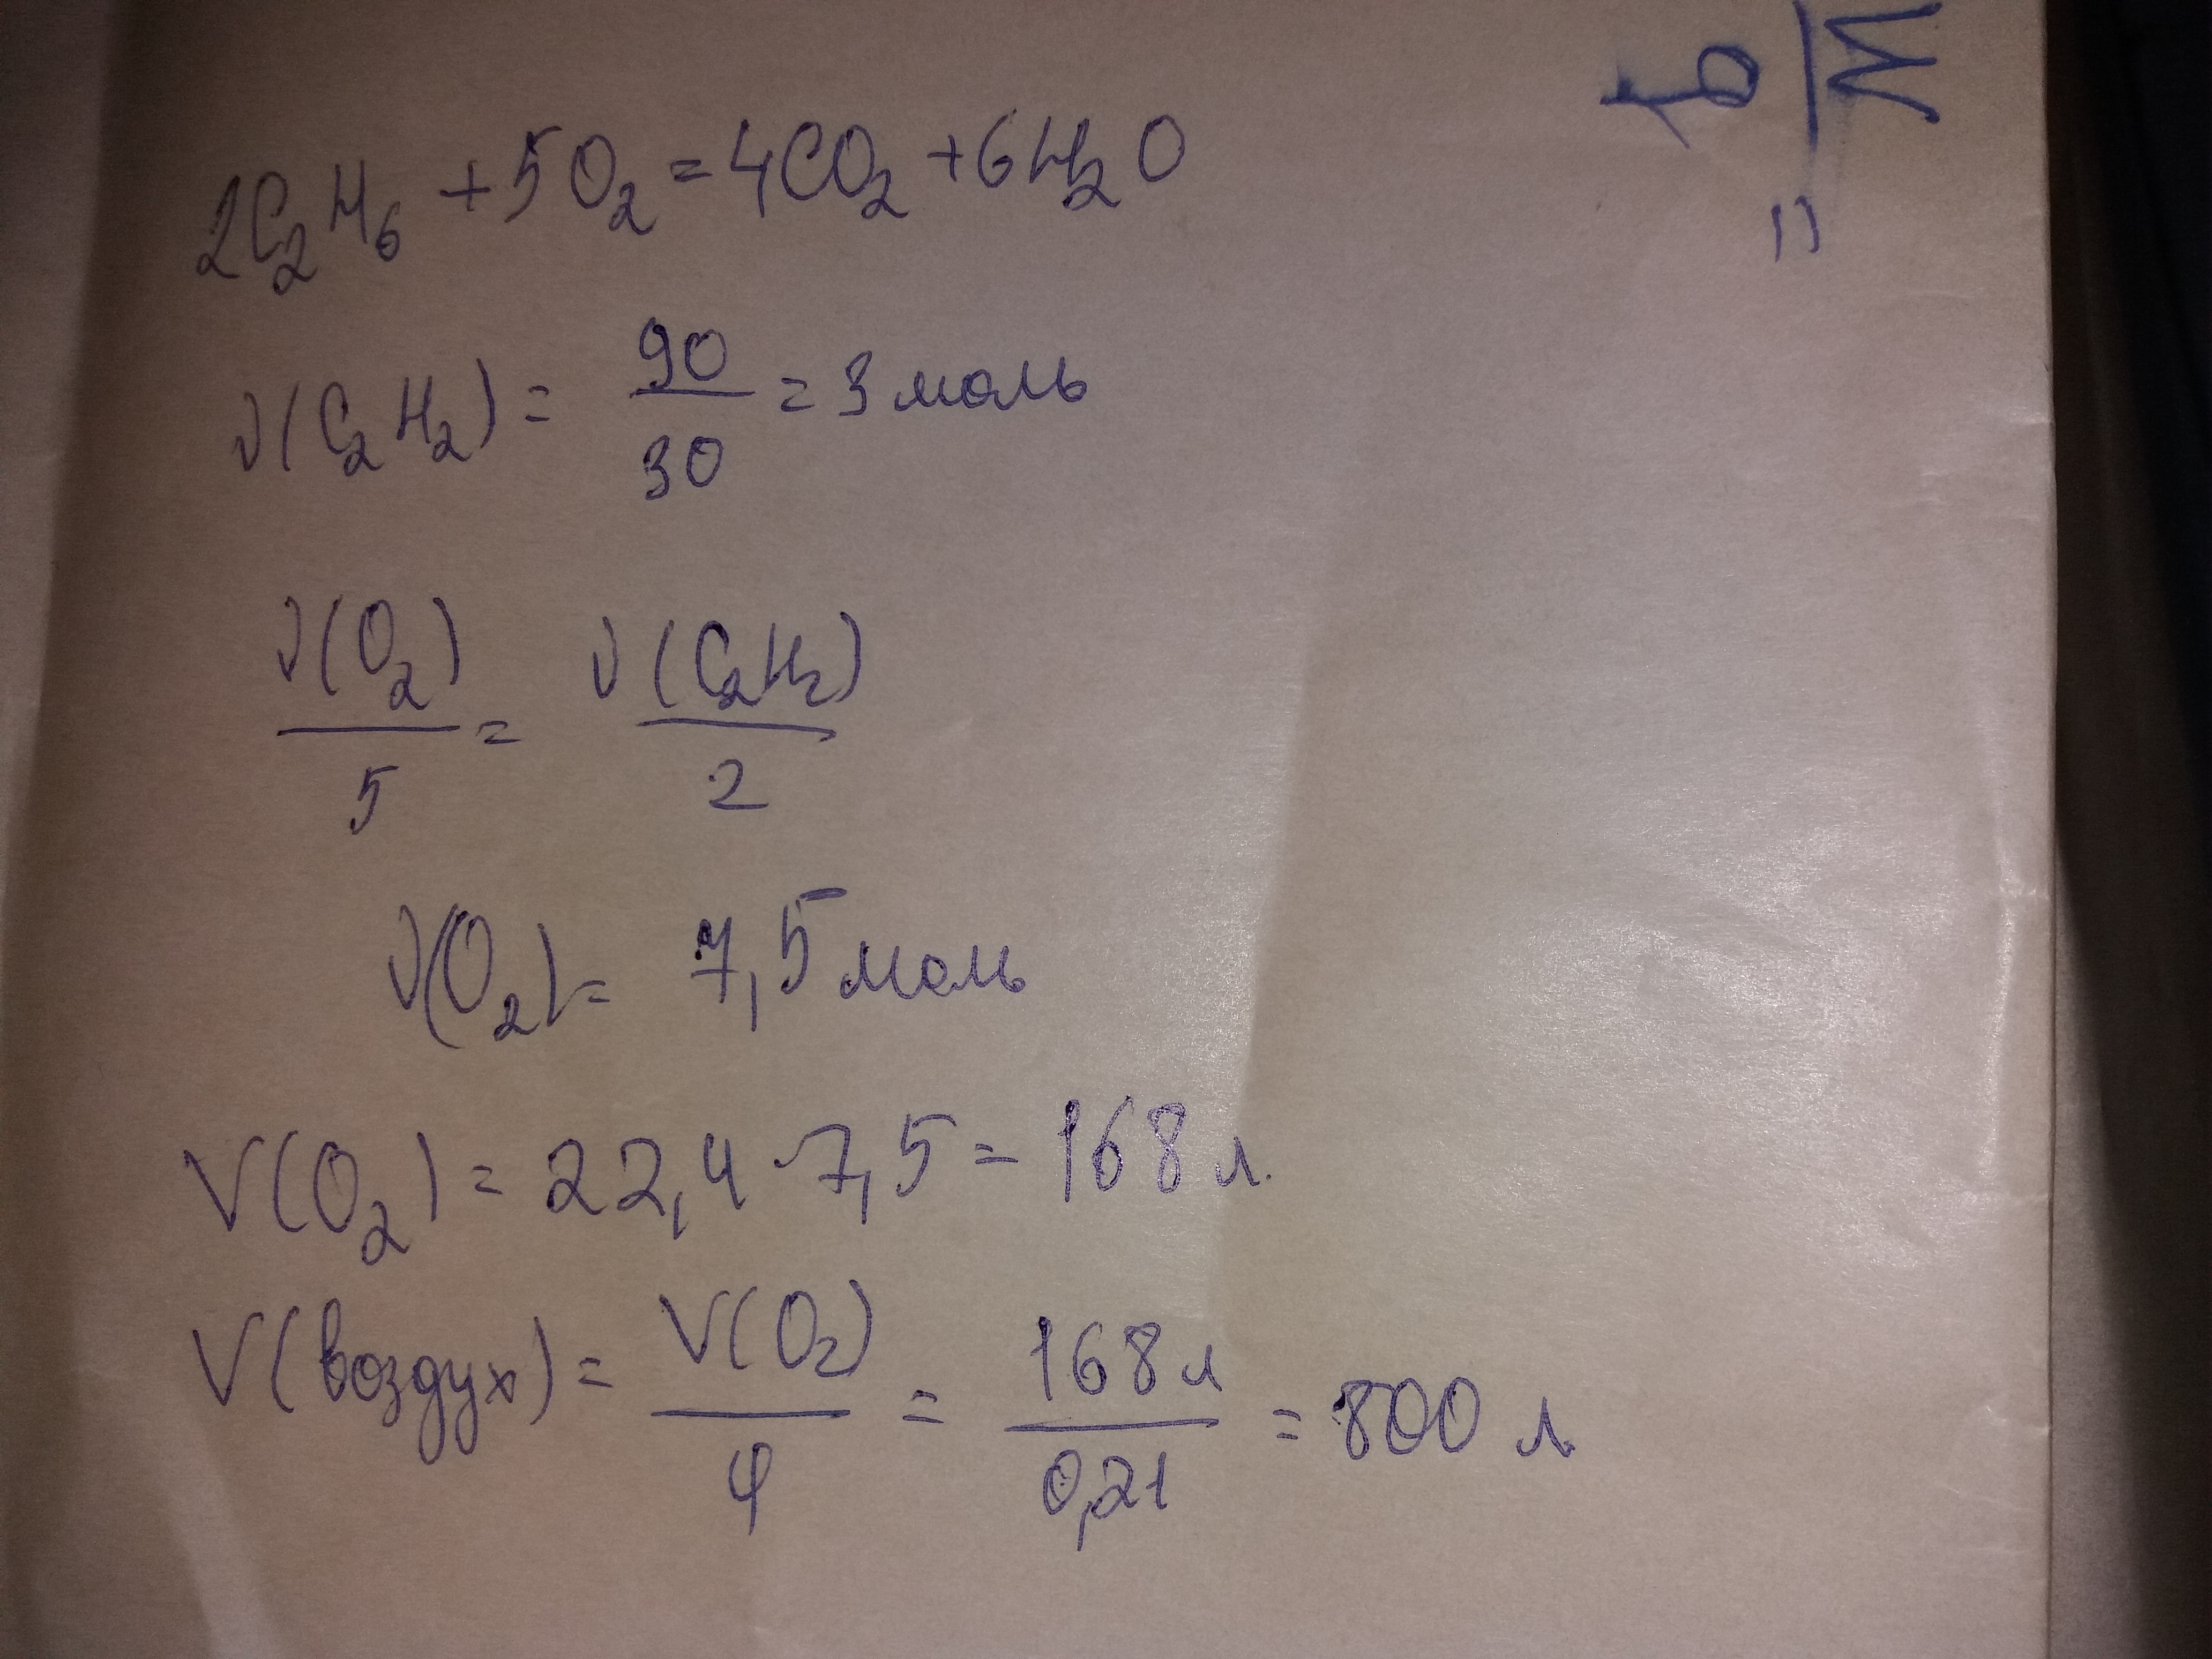 2C₂H₆ + 5O₂ = 4CO₂ + 6H₂O
ν(C₂H₂) = 90/30 = 3 моль
ν(O₂)/5 = ν(C₂H₂)/2
ν(O₂) = 7,5 моль
V(O₂) = 22,4 · 7,5 = 168 л.
V(воздух) = V(O₂)/φ = 168 л/0,21 = 800 л